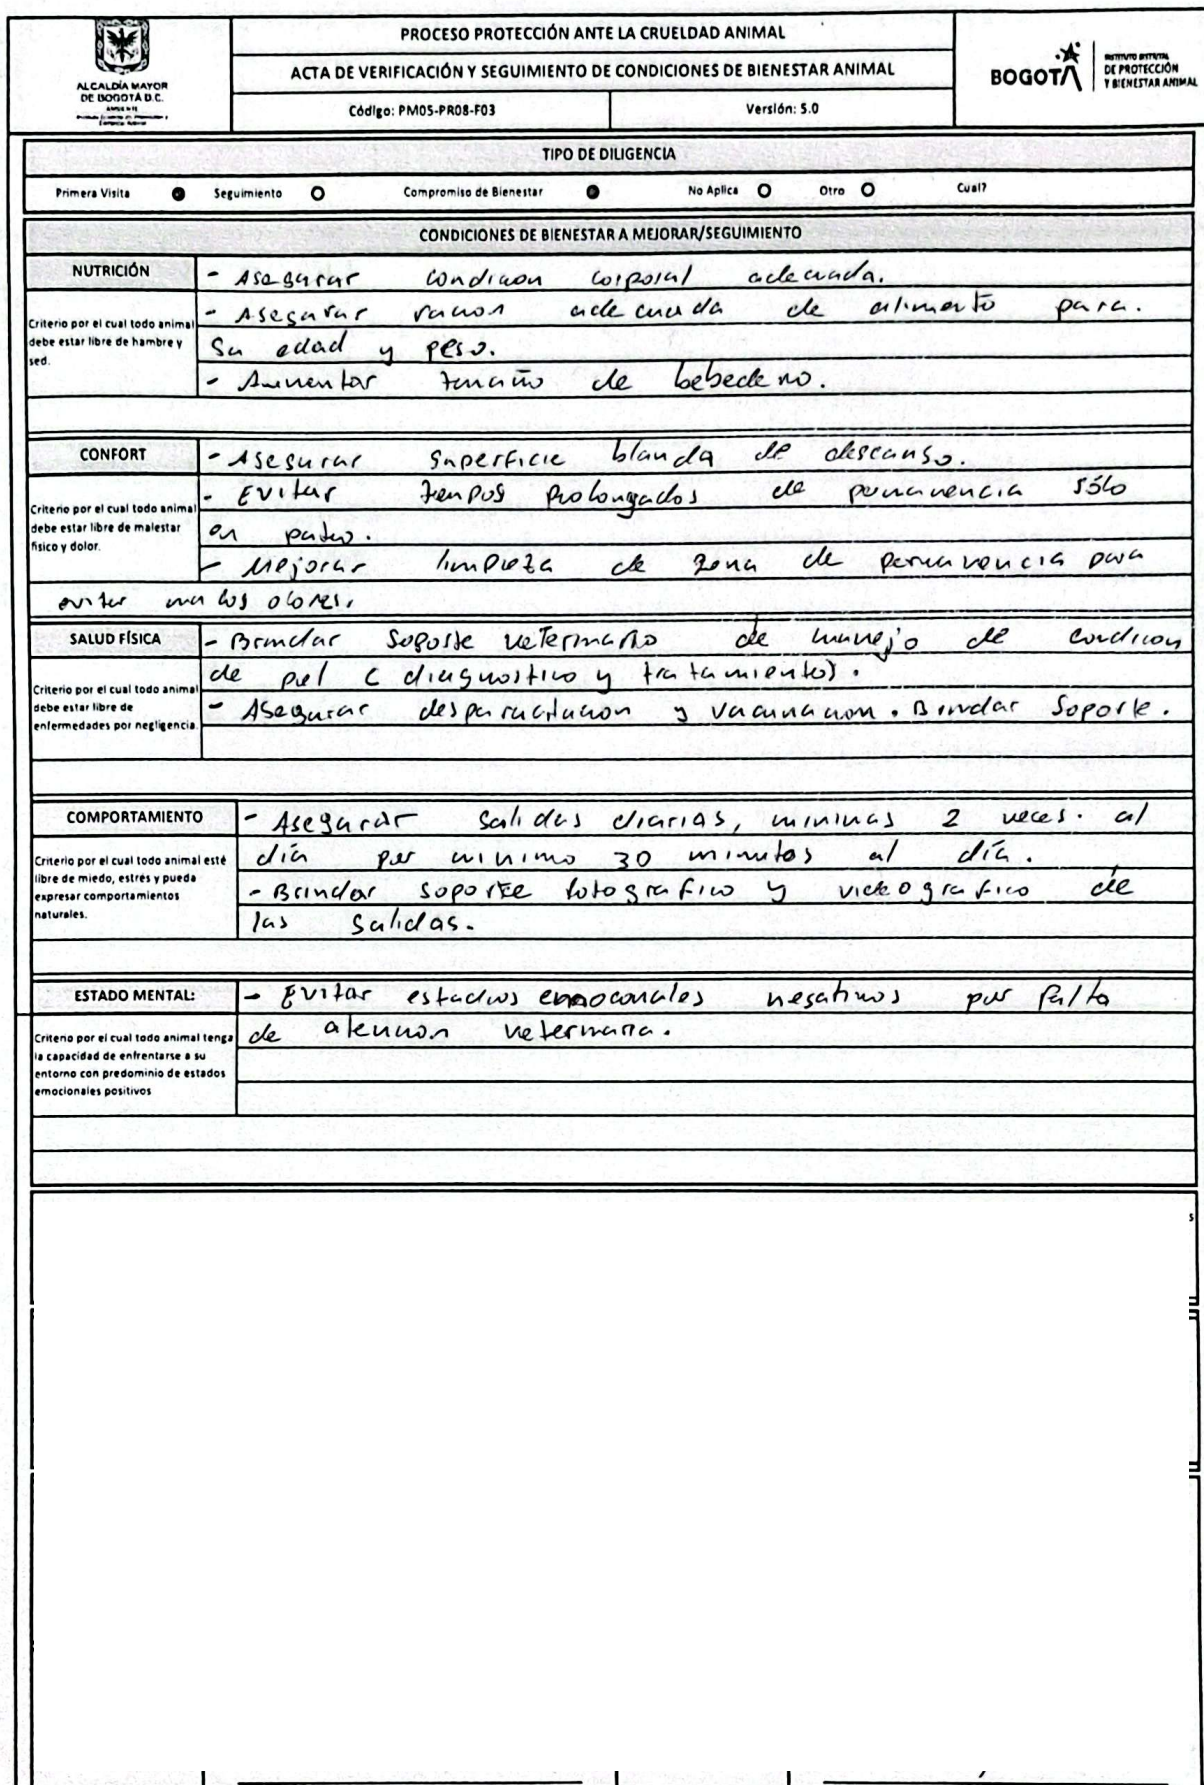 ALCALDÍA MAYOR
DE BOGOTÁ D.C.
AMBIENTE
PROCESO PROTECCIÓN ANTE LA CRUELDAD ANIMAL
ACTA DE VERIFICACIÓN Y SEGUIMIENTO DE CONDICIONES DE BIENESTAR ANIMAL
Código: PM05-PR08-F03
Versión: 5.0
BOGOTÁ
INSTITUTO DISTRITAL
DE PROTECCIÓN
Y BIENESTAR ANIMAL
TIPO DE DILIGENCIA
Primera Visita Seguimiento Compromiso de Bienestar No Aplica Otro Cual?
CONDICIONES DE BIENESTAR A MEJORAR/SEGUIMIENTO
NUTRICIÓN
Criterio por el cual todo animal
debe estar libre de hambre y
sed.
- Asegurar condicion corporal adecuada.
- Asegurar racion adecuada de alimento para.
su edad y peso.
- Aumentar tamaño de bebedero.
CONFORT
Criterio por el cual todo animal
debe estar libre de malestar
físico y dolor.
- Asegurar superficie blanda de descanso.
- Evitar tiempos prolongados de permanencia sólo
en patio.
- Mejorar limpieza de zona de permanencia para
evitar malos olores.
SALUD FÍSICA
Criterio por el cual todo animal
debe estar libre de
enfermedades por negligencia.
- Brindar soporte veterinario de manejo de condicion
de piel (diagnostico y tratamiento).
- Asegurar desparacitacion y vacunacion. Brindar soporte.
COMPORTAMIENTO
Criterio por el cual todo animal esté
libre de miedo, estres y pueda
expresar comportamientos
naturales.
- Asegurar salidas diarias, minimas 2 veces. al
día por minimo 30 minutos al día.
- Brindar soporte fotografico y videografico de
las salidas.
ESTADO MENTAL:
Criterio por el cual todo animal tenga
la capacidad de enfrentarse a su
entorno con predominio de estados
emocionales positivos
- Evitar estados emocionales negativos por falta
de atencion veterinaria.